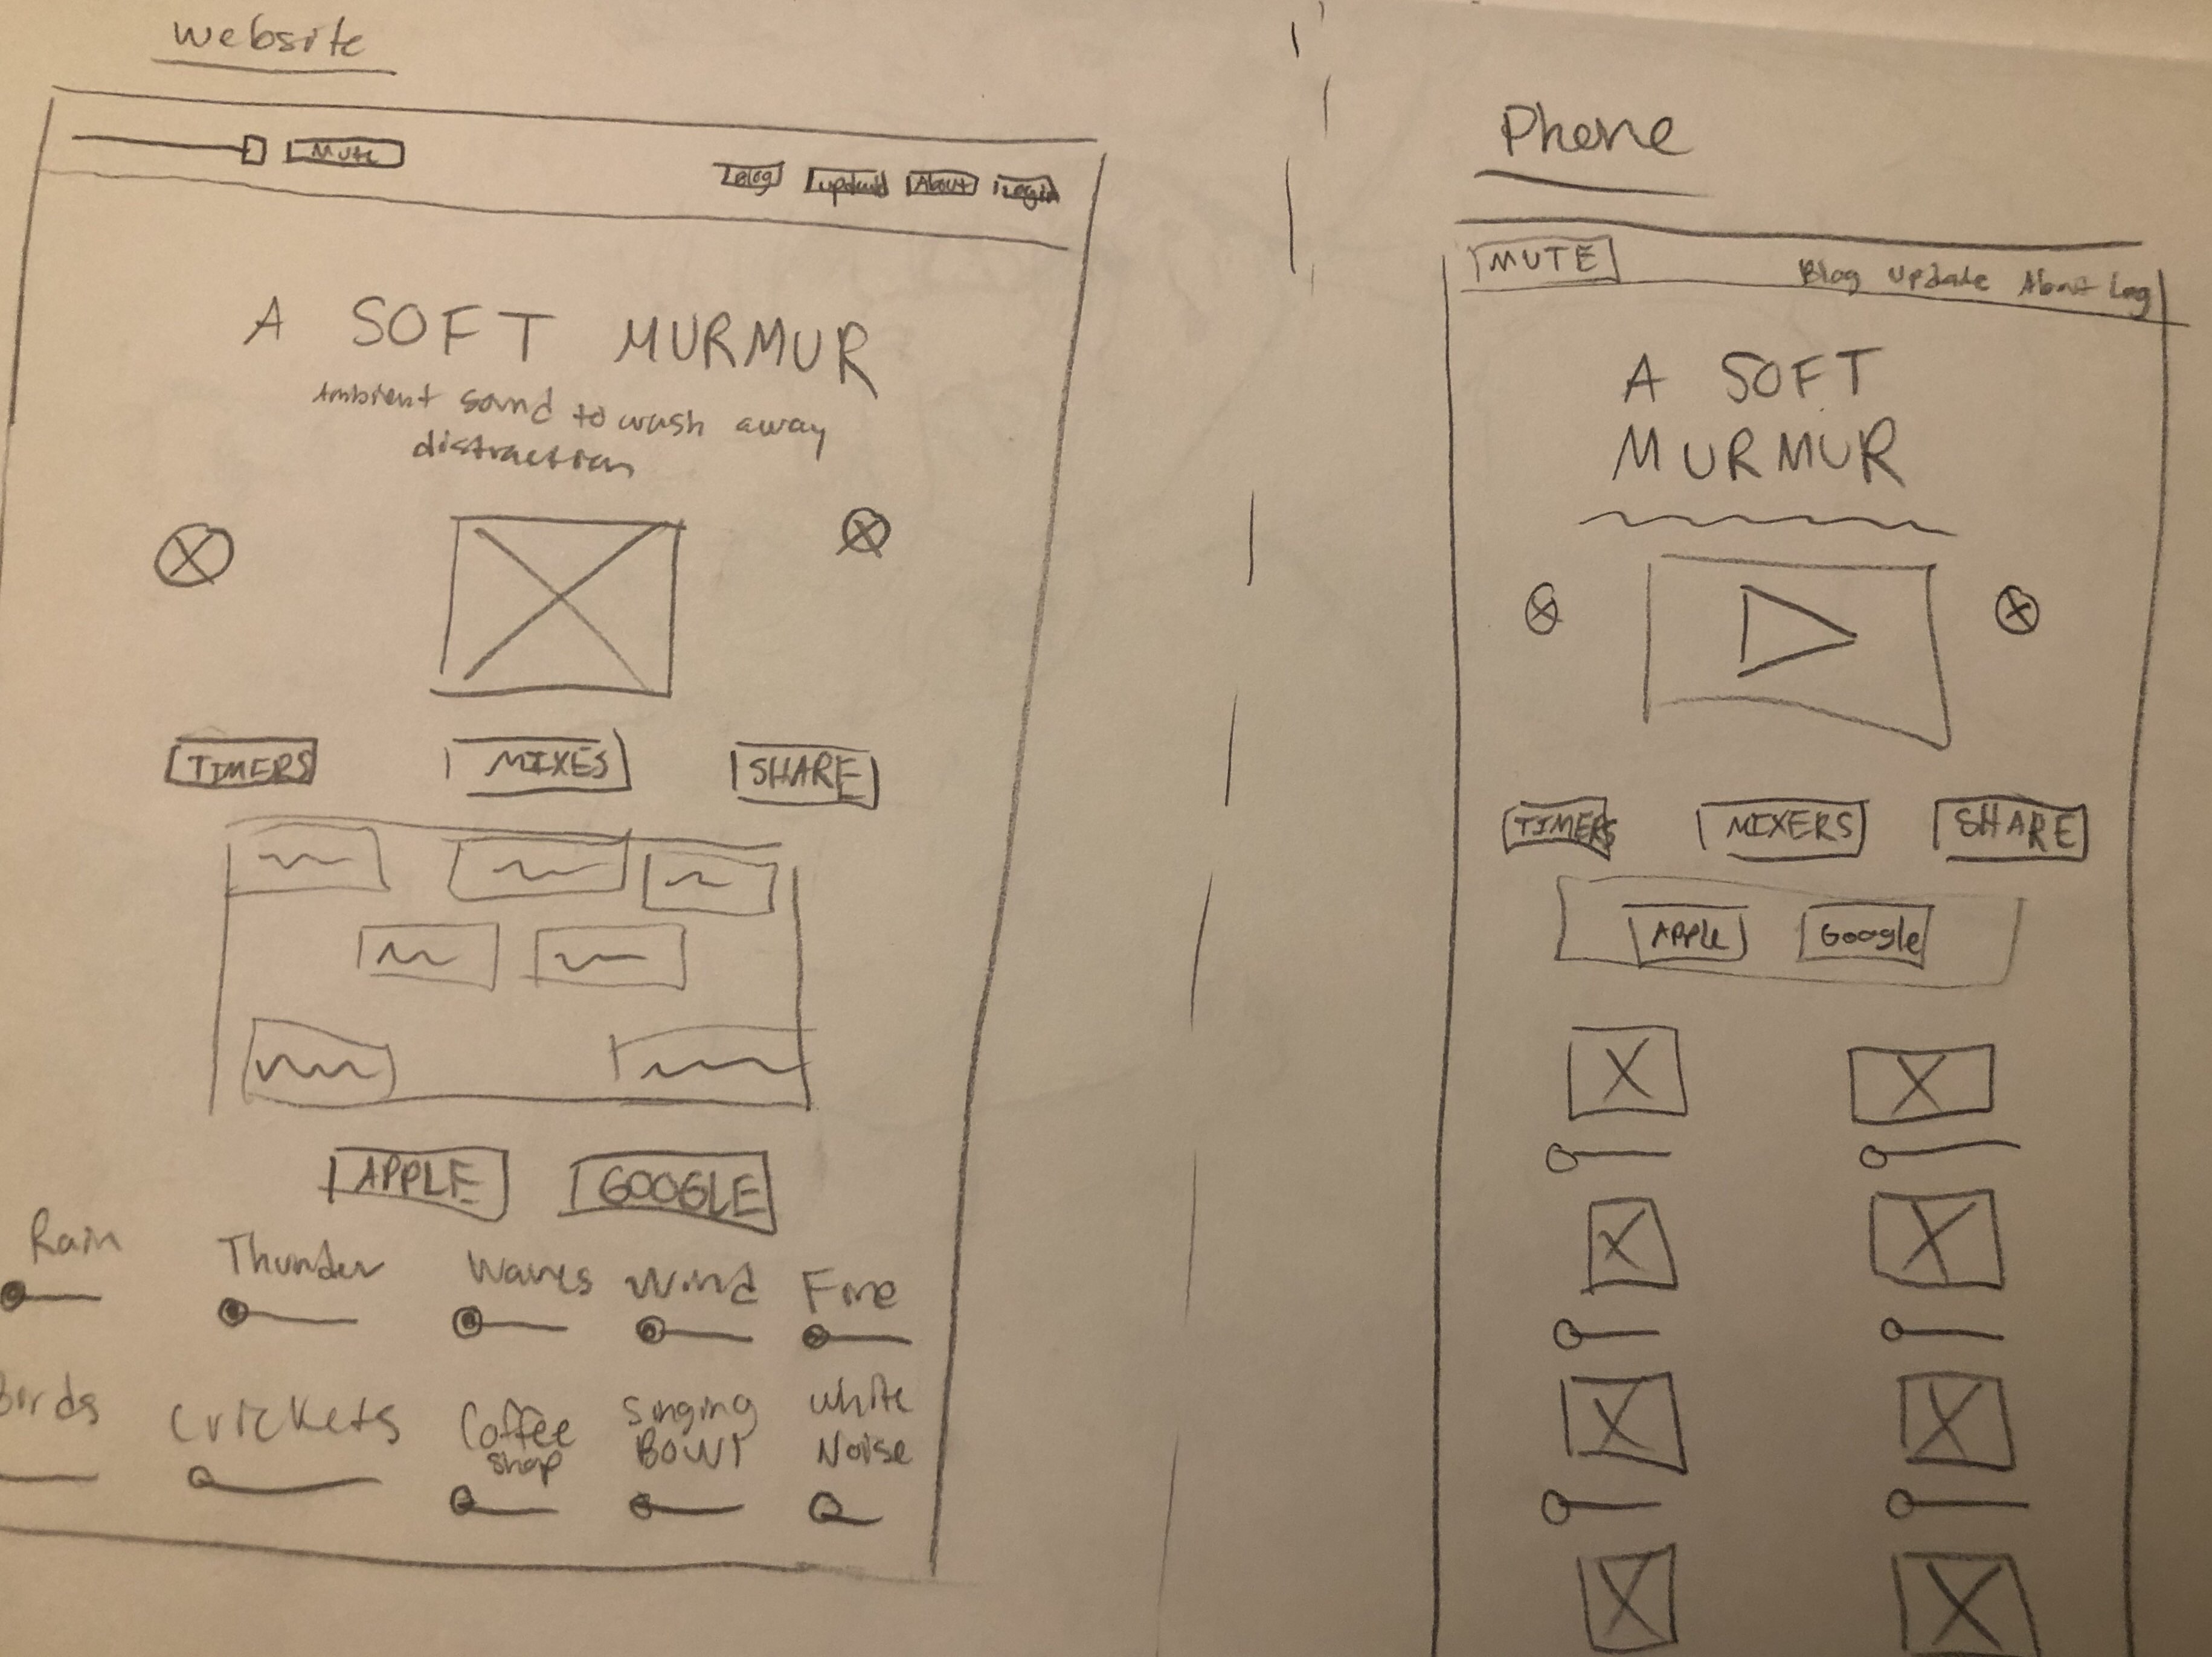 website
Mute
Blog Update About Login
A SOFT MURMUR
Ambient sound to wash away
distraction
TIMERS MIXES SHARE
APPLE GOOGLE
Rain Thunder Waves Wind Fire
Birds Crickets Coffee shop Singing BOWl white Noise
Phone
MUTE Blog Update About Log
A SOFT
MURMUR
TIMERS MIXERS SHARE
APPle Google